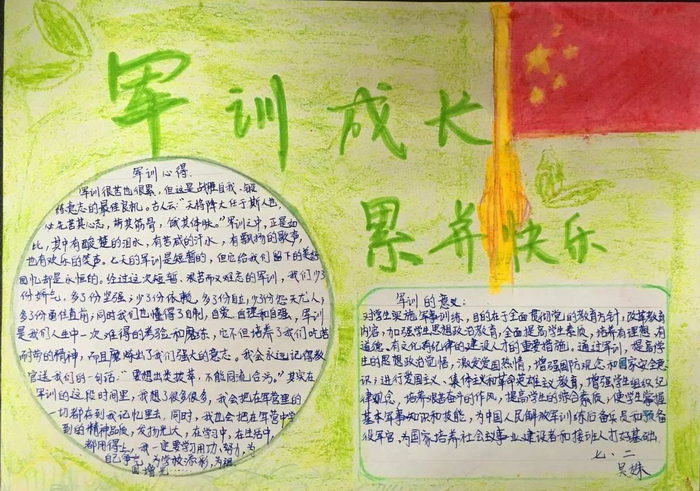 军训成长
累并快乐
军训心得
军训很苦也很累,但这是战胜自我、锻
炼意志的最佳良机。古人云:"天将降大任于斯人也,
必先苦其心志,劳其筋骨,饿其体肤。"军训之中,正是如
比,其中有酸楚的泪水,有苦咸的汗水,有飘扬的歌声,
也有欢乐的笑声。七天的军训是短暂的,但它给我们留下的美好
回忆却是永恒的。经过这次短暂、艰苦而又难忘的军训,我们少了
份娇气,多了份坚强;少了份依赖,多了份自立;少了份怨天尤人,
多了份勇往直前;同时我们也懂得了自制,自爱,自理和自强。军训
是我们人生中一次难得的考验和磨练,它不但培养了我们吃苦
耐劳的精神,而且磨炼出了我们强大的意志。我会永远记得教
官送我们的一句话:"要想出类拔萃,不能同流合污。"其实在
军训的这段时间里,我想了很多很多,我会把在军营里的
一切都存到我记忆里去,同时,我也会把在军营中学
到的精神品质,发扬光大,在学习中,在生活中,
都用得上,我一定要学习用功,努力,为
自己争
军训的意义:
对学生实施军事训练,目的在于全面贯彻党的教育方针,改革教育
内容,加强学生思想政治教育,全面提高学生素质,培养有理想、有
道德、有文化有纪律的建设人才的重要措施,通过军训,提高学
生的思想政治觉悟,激发爱国热情,增强国防观念和国家安全意
识;进行爱国主义、集体主义和革命英雄主义教育,增强学生组织纪
律观念,培养艰苦奋斗的作风,提高学生的综合素质,使学生掌握
基本军事知识和技能,为中国人民解放军训练后备兵员和预备
役军官,为国家培养社会主义事业建设者和接班人打好基础.
七.二
吴姝